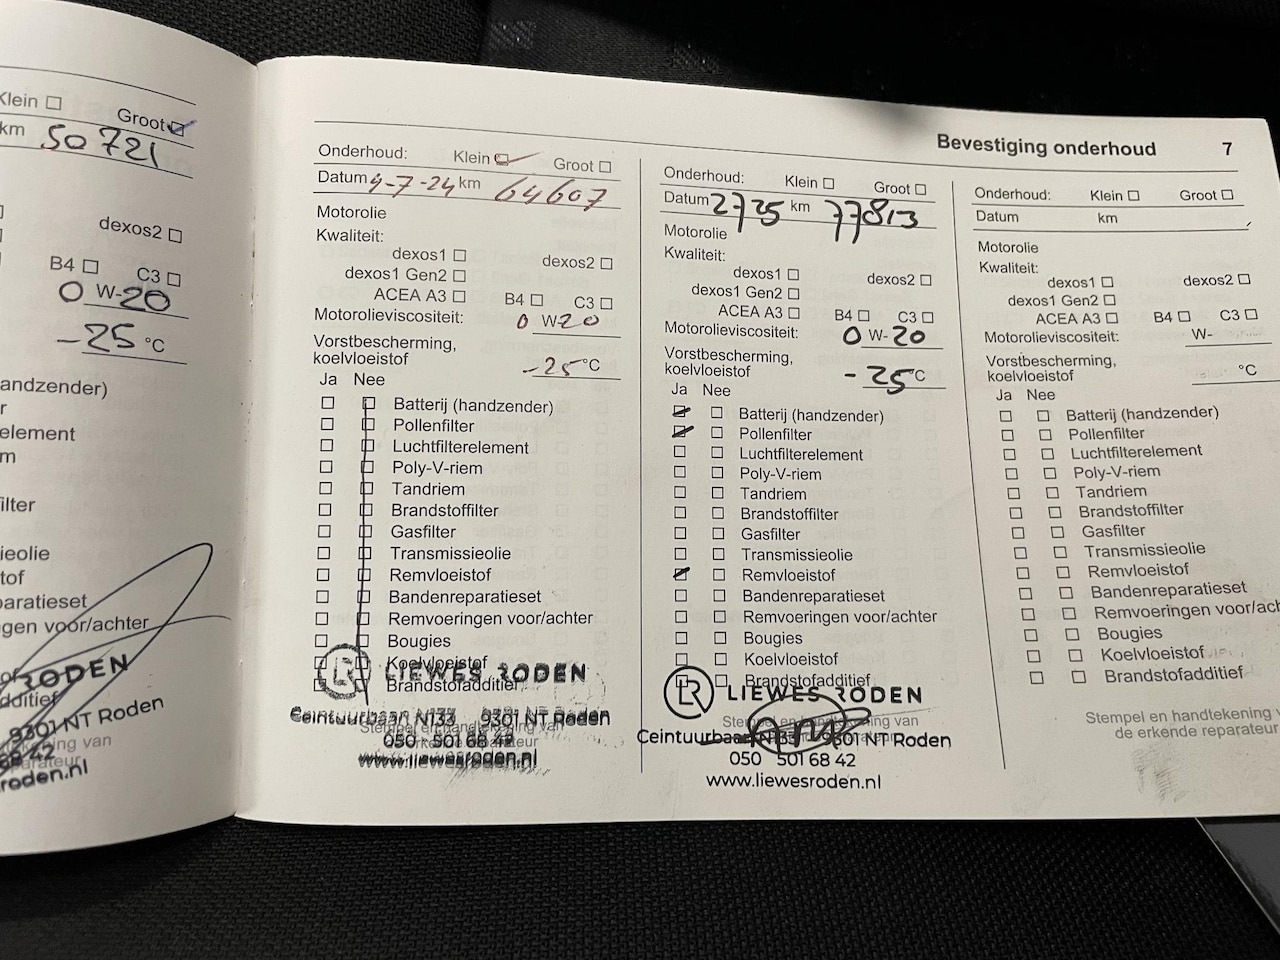 Klein
Groot
km 50721
dexos2
B4 C3
0 W-20
-25 °C
andzender)
r
element
m
ilter
ieolie
tof
paratieset
gen voor/achter
RODEN
dditief
9301 NT Roden
roden.nl
Bevestiging onderhoud 7
Onderhoud: Klein Groot
Datum 9-7-24 km 64607
Motorolie
Kwaliteit:
dexos1 dexos2
dexos1 Gen2
ACEA A3 B4 C3
Motorolieviscositeit: 0 W-20
Vorstbescherming,
koelvloeistof -25 °C
Ja Nee
Batterij (handzender)
Pollenfilter
Luchtfilterelement
Poly-V-riem
Tandriem
Brandstoffilter
Gasfilter
Transmissieolie
Remvloeistof
Bandenreparatieset
Remvoeringen voor/achter
Bougies
Koelvloeistof
Brandstofadditief
LR LIEWES RODEN
Ceintuurbaan N133 9301 NT Roden
Stempel en handtekening van
de erkende reparateur
050 - 501 68 42
www.liewesroden.nl
Onderhoud: Klein Groot
Datum 2725 km 77813
Motorolie
Kwaliteit:
dexos1 dexos2
dexos1 Gen2
ACEA A3 B4 C3
Motorolieviscositeit: 0 W-20
Vorstbescherming,
koelvloeistof -25 °C
Ja Nee
Batterij (handzender)
Pollenfilter
Luchtfilterelement
Poly-V-riem
Tandriem
Brandstoffilter
Gasfilter
Transmissieolie
Remvloeistof
Bandenreparatieset
Remvoeringen voor/achter
Bougies
Koelvloeistof
Brandstofadditief
LR LIEWES RODEN
Stempel en handtekening van
Ceintuurbaan N133 9301 NT Roden
050 501 68 42
www.liewesroden.nl
Onderhoud: Klein Groot
Datum km
Motorolie
Kwaliteit:
dexos1 dexos2
dexos1 Gen2
ACEA A3 B4 C3
Motorolieviscositeit: W-
Vorstbescherming,
koelvloeistof °C
Ja Nee
Batterij (handzender)
Pollenfilter
Luchtfilterelement
Poly-V-riem
Tandriem
Brandstoffilter
Gasfilter
Transmissieolie
Remvloeistof
Bandenreparatieset
Remvoeringen voor/ach
Bougies
Koelvloeistof
Brandstofadditief
Stempel en handtekening v
de erkende reparateur